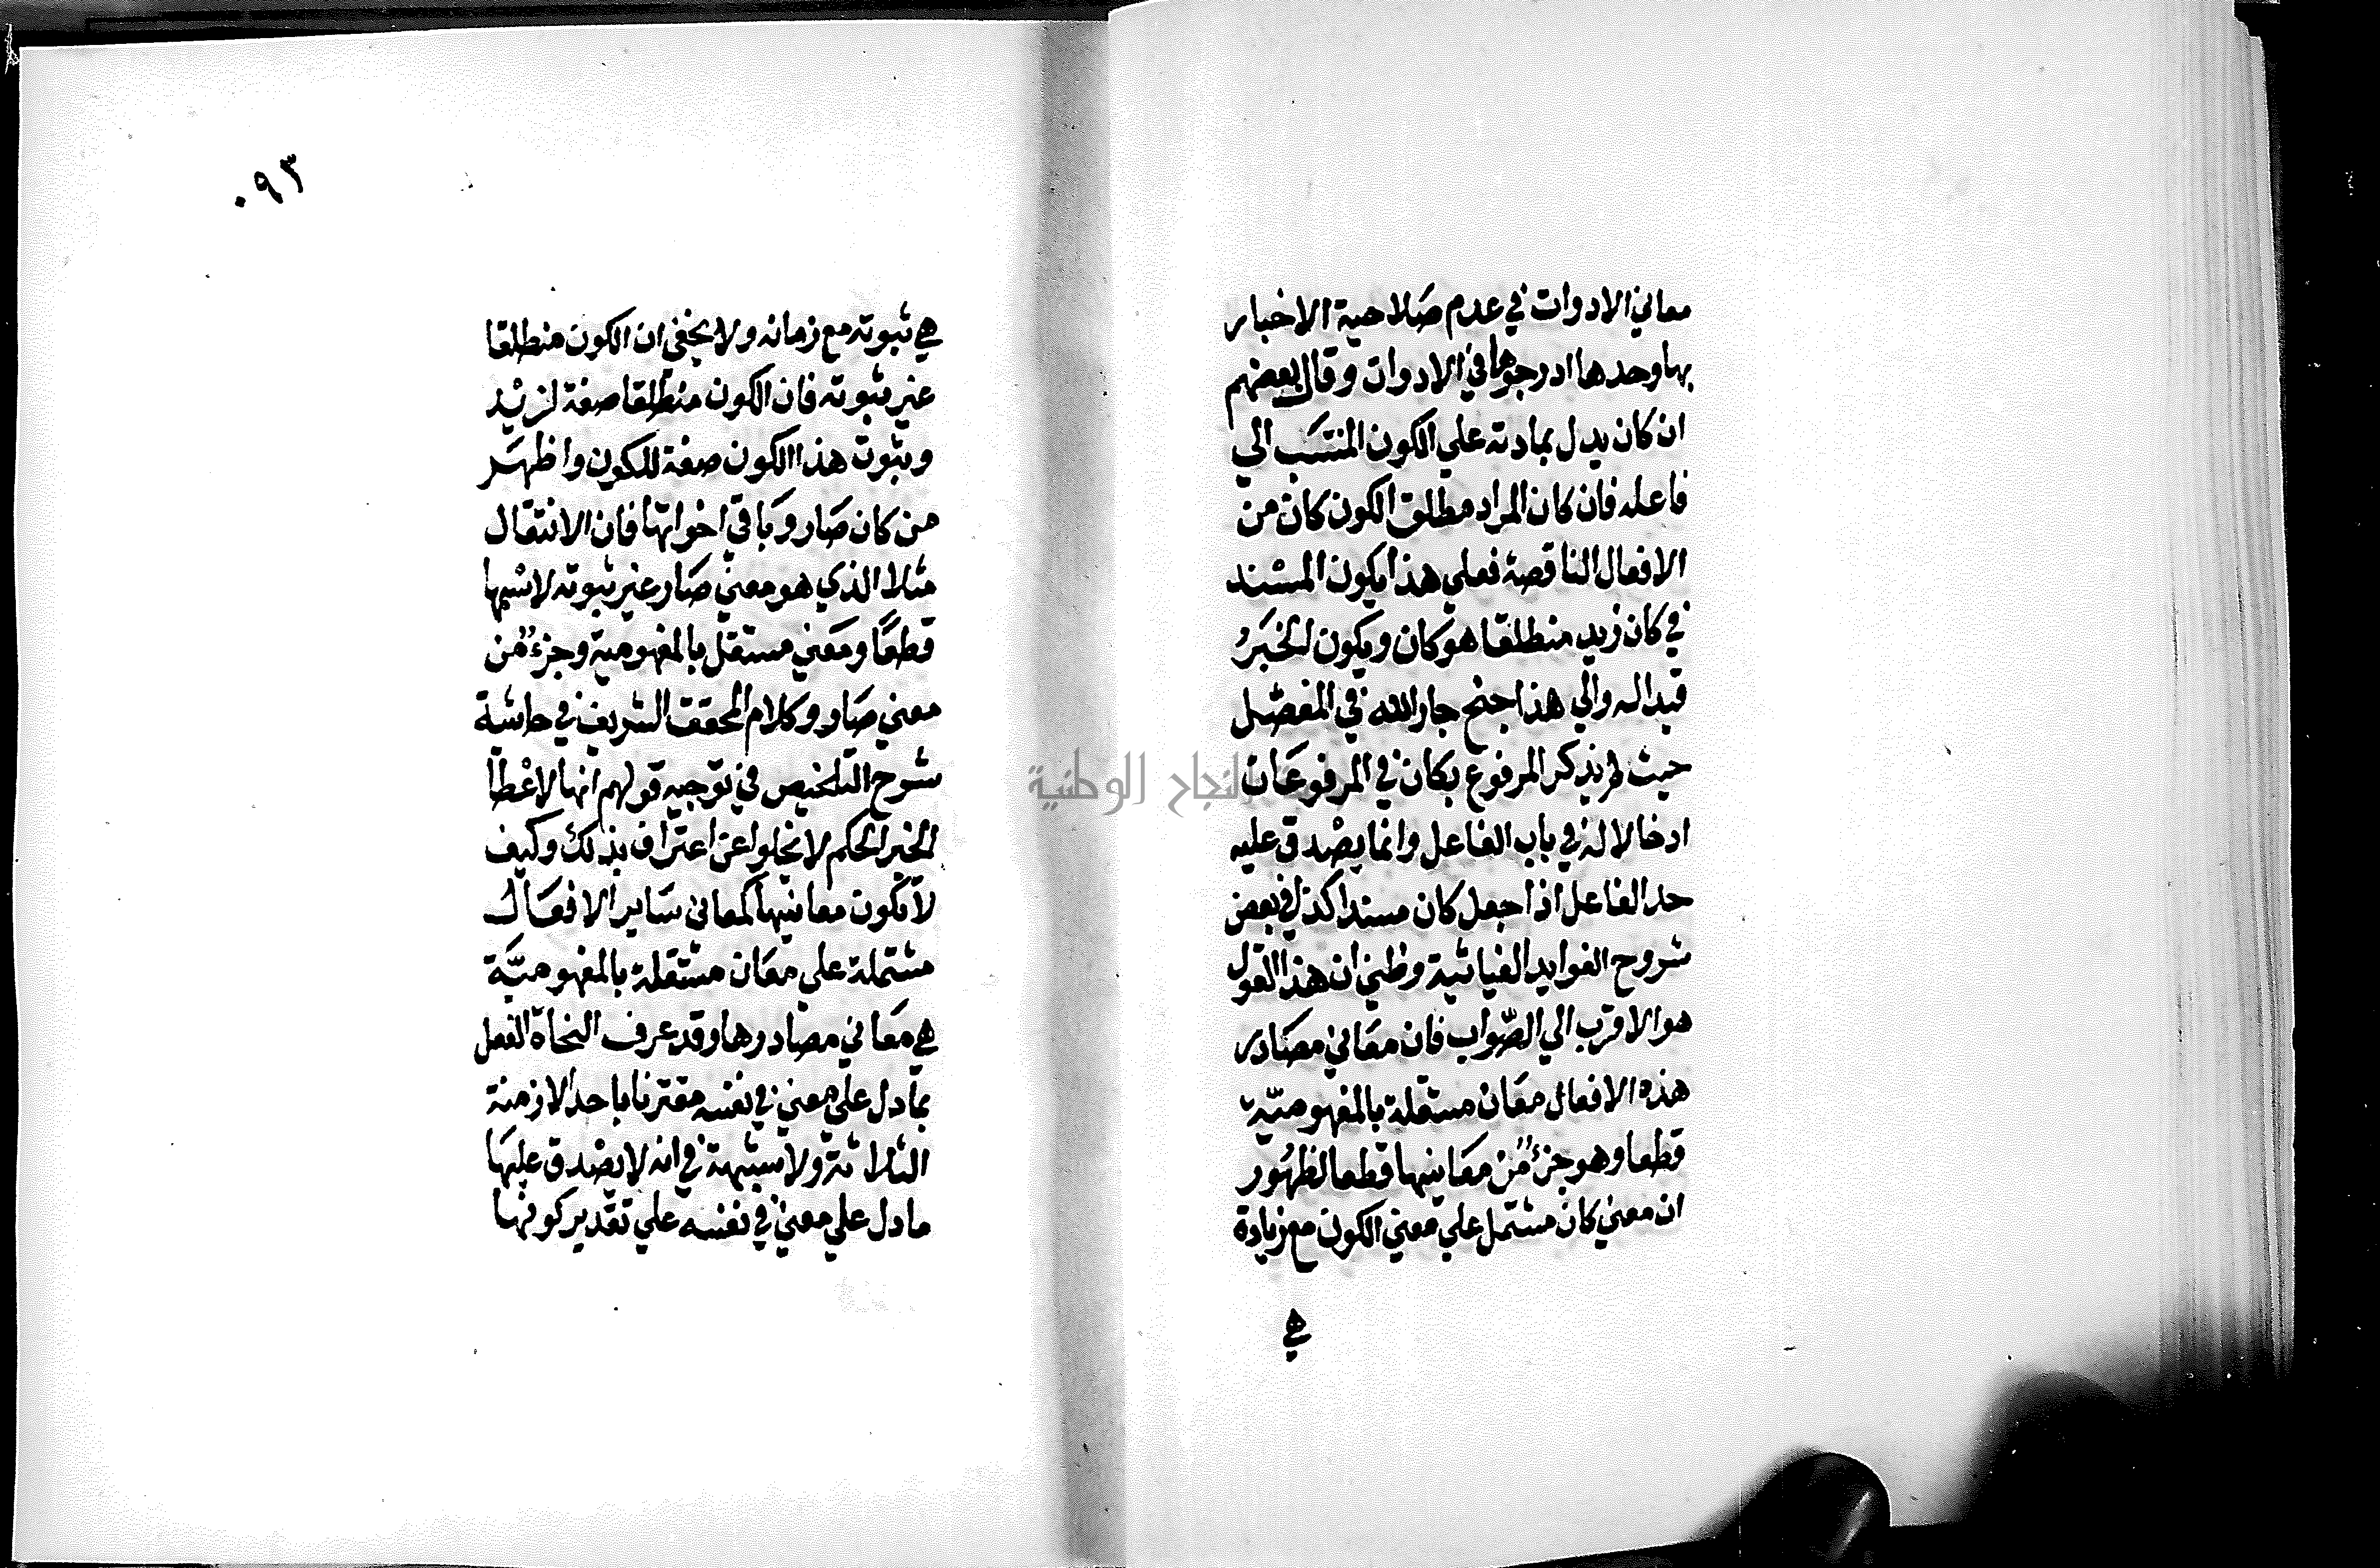 معاني الادوات في عدم صَلاحية الاخبار
بها وحدها ادرجوها في الادوات وقال بعضهم
ان كان يدل بمادته علي الكون المنتسَب الي
فاعله فان كان المراد مطلق الكون كان من
الافعال الناقصة فعلي هذا يكون المسْند
في كان زيد منطلقا هو كان ويكون الخبَرُ
قيدا له والي هذا جنح جار الله في المفصّل
حيث لم يذكر المرفوع بكان في المرفوعَات
ادخالا له في باب الفاعل وانما يصْدق عليه
حد الفاعل اذا جعل كان مسندا كذا في بعض
شروح الفوايد الغياثية وظني ان هذا القول
هو الاقرب الي الصّواب فان معَاني مصَادر
هذه الافعال معَان مستقلة بالمفهوميّة
قطعا وهو جزءٌ من معَانيها قطعا لظهُور
ان معني كان مشتمل علي معني الكون مع زيادة
هي
٠٩٣
هي ثبوته مع زمانه ولا يخفي ان الكون منطلقا
غير ثبوته فان الكون منطلقا صفة لزيْد
وثبوت هذا الكون صفة للكون واظهَر
من كان صَار وبَاقي اخواتها فان الانتقال
مثلا الذي هو معني صَار غير ثبوته لاسْمها
قطعًا ومَعني مستقل بالمفهومية وجزءٌ من
معني صَار وكلام المحقق الشريف في حاشية
شروح التلخيص في توجيه قولهم انها لاعْطا
الخبر الحكم لا يخلوا عن اعترَاف بذلك وكيف
لا تكون معانيها كمعاني سَاير الافعَال
مشتملة علي معَان مستقلة بالمفهوميَّة
هي معَاني مصادرها وقد عرف النحاة الفعل
بما دل علي معني في نفسه مقترنا باحد الازمنة
الثلاثة ولا شبهة في انه لا يصْدق عليهَا
ما دل علي معني في نفسه علي تقدير كونها
النجاح الوطنية